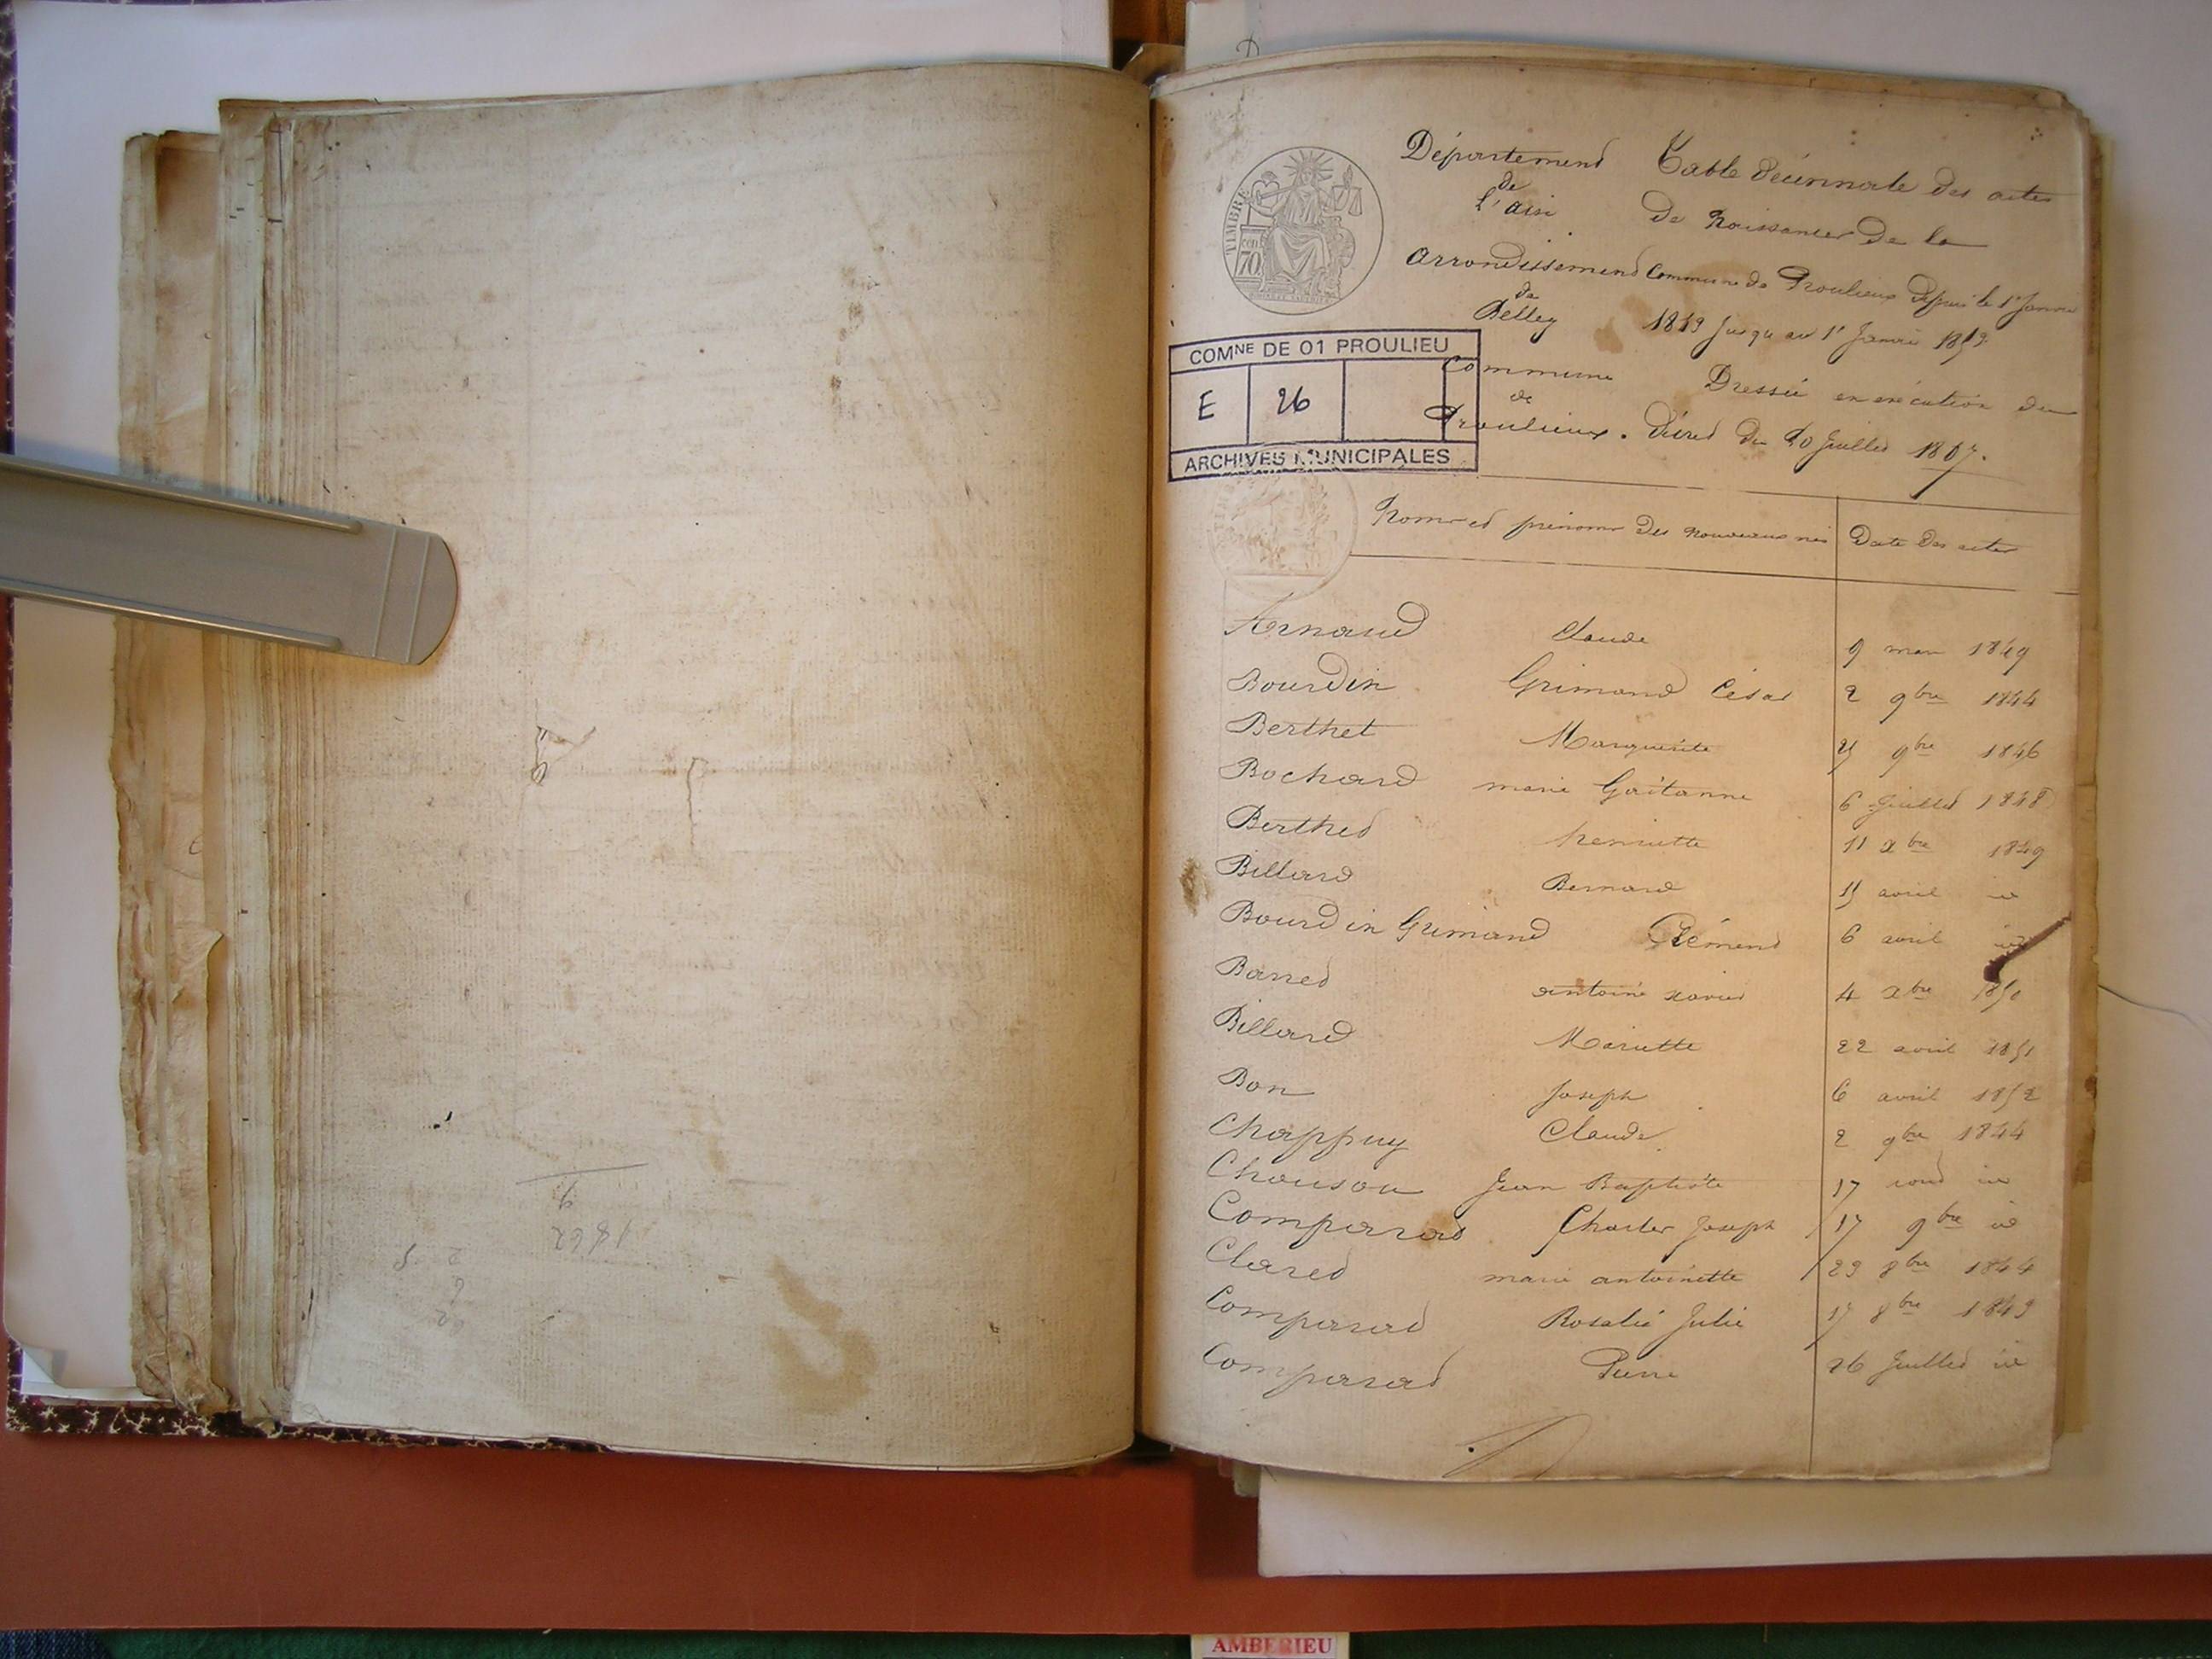 Département
de
l'ain
Arrondissement
de
Belley
Commune
de
Proulieux.
Table décennale des actes
de Naissances de la
Commune de Proulieux depuis le 1er Janvier
Jusqu'au 1er Janvier
Dressée en exécution du
Décret du 20 Juillet 1807.
TIMBRE
70
COMNE DE 01 PROULIEU
E 26
ARCHIVES MUNICIPALES
Noms et prénoms des nouveaux nés Date des actes
Arnaud Claude 9 mars 1849
Bourdin Grimand César 2 9bre 1844
Berthet Marguerite 9bre 1846
Bochard marie Gaëtanne 6 Juillet 1848
Berthet henriette 11 xbre 1849
Billard Bernard 15 avril id
Bourdin Grimand Clément 6 avril id
Barret antoine xavier 4 xbre 1850
Billard Mariette 22 avril 1851
Bon Joseph 6 avril 1852
Chappuy Claude 2 9bre 1844
Chouson Jean Baptiste 17 id
Comparat Charles Joseph 17 9bre id
Claret marie antoinette 29 8bre 1844
Comparat Rosalie Julie 8bre
Comparat Pierre 26 Juillet id
1862
9
AMBERIEU